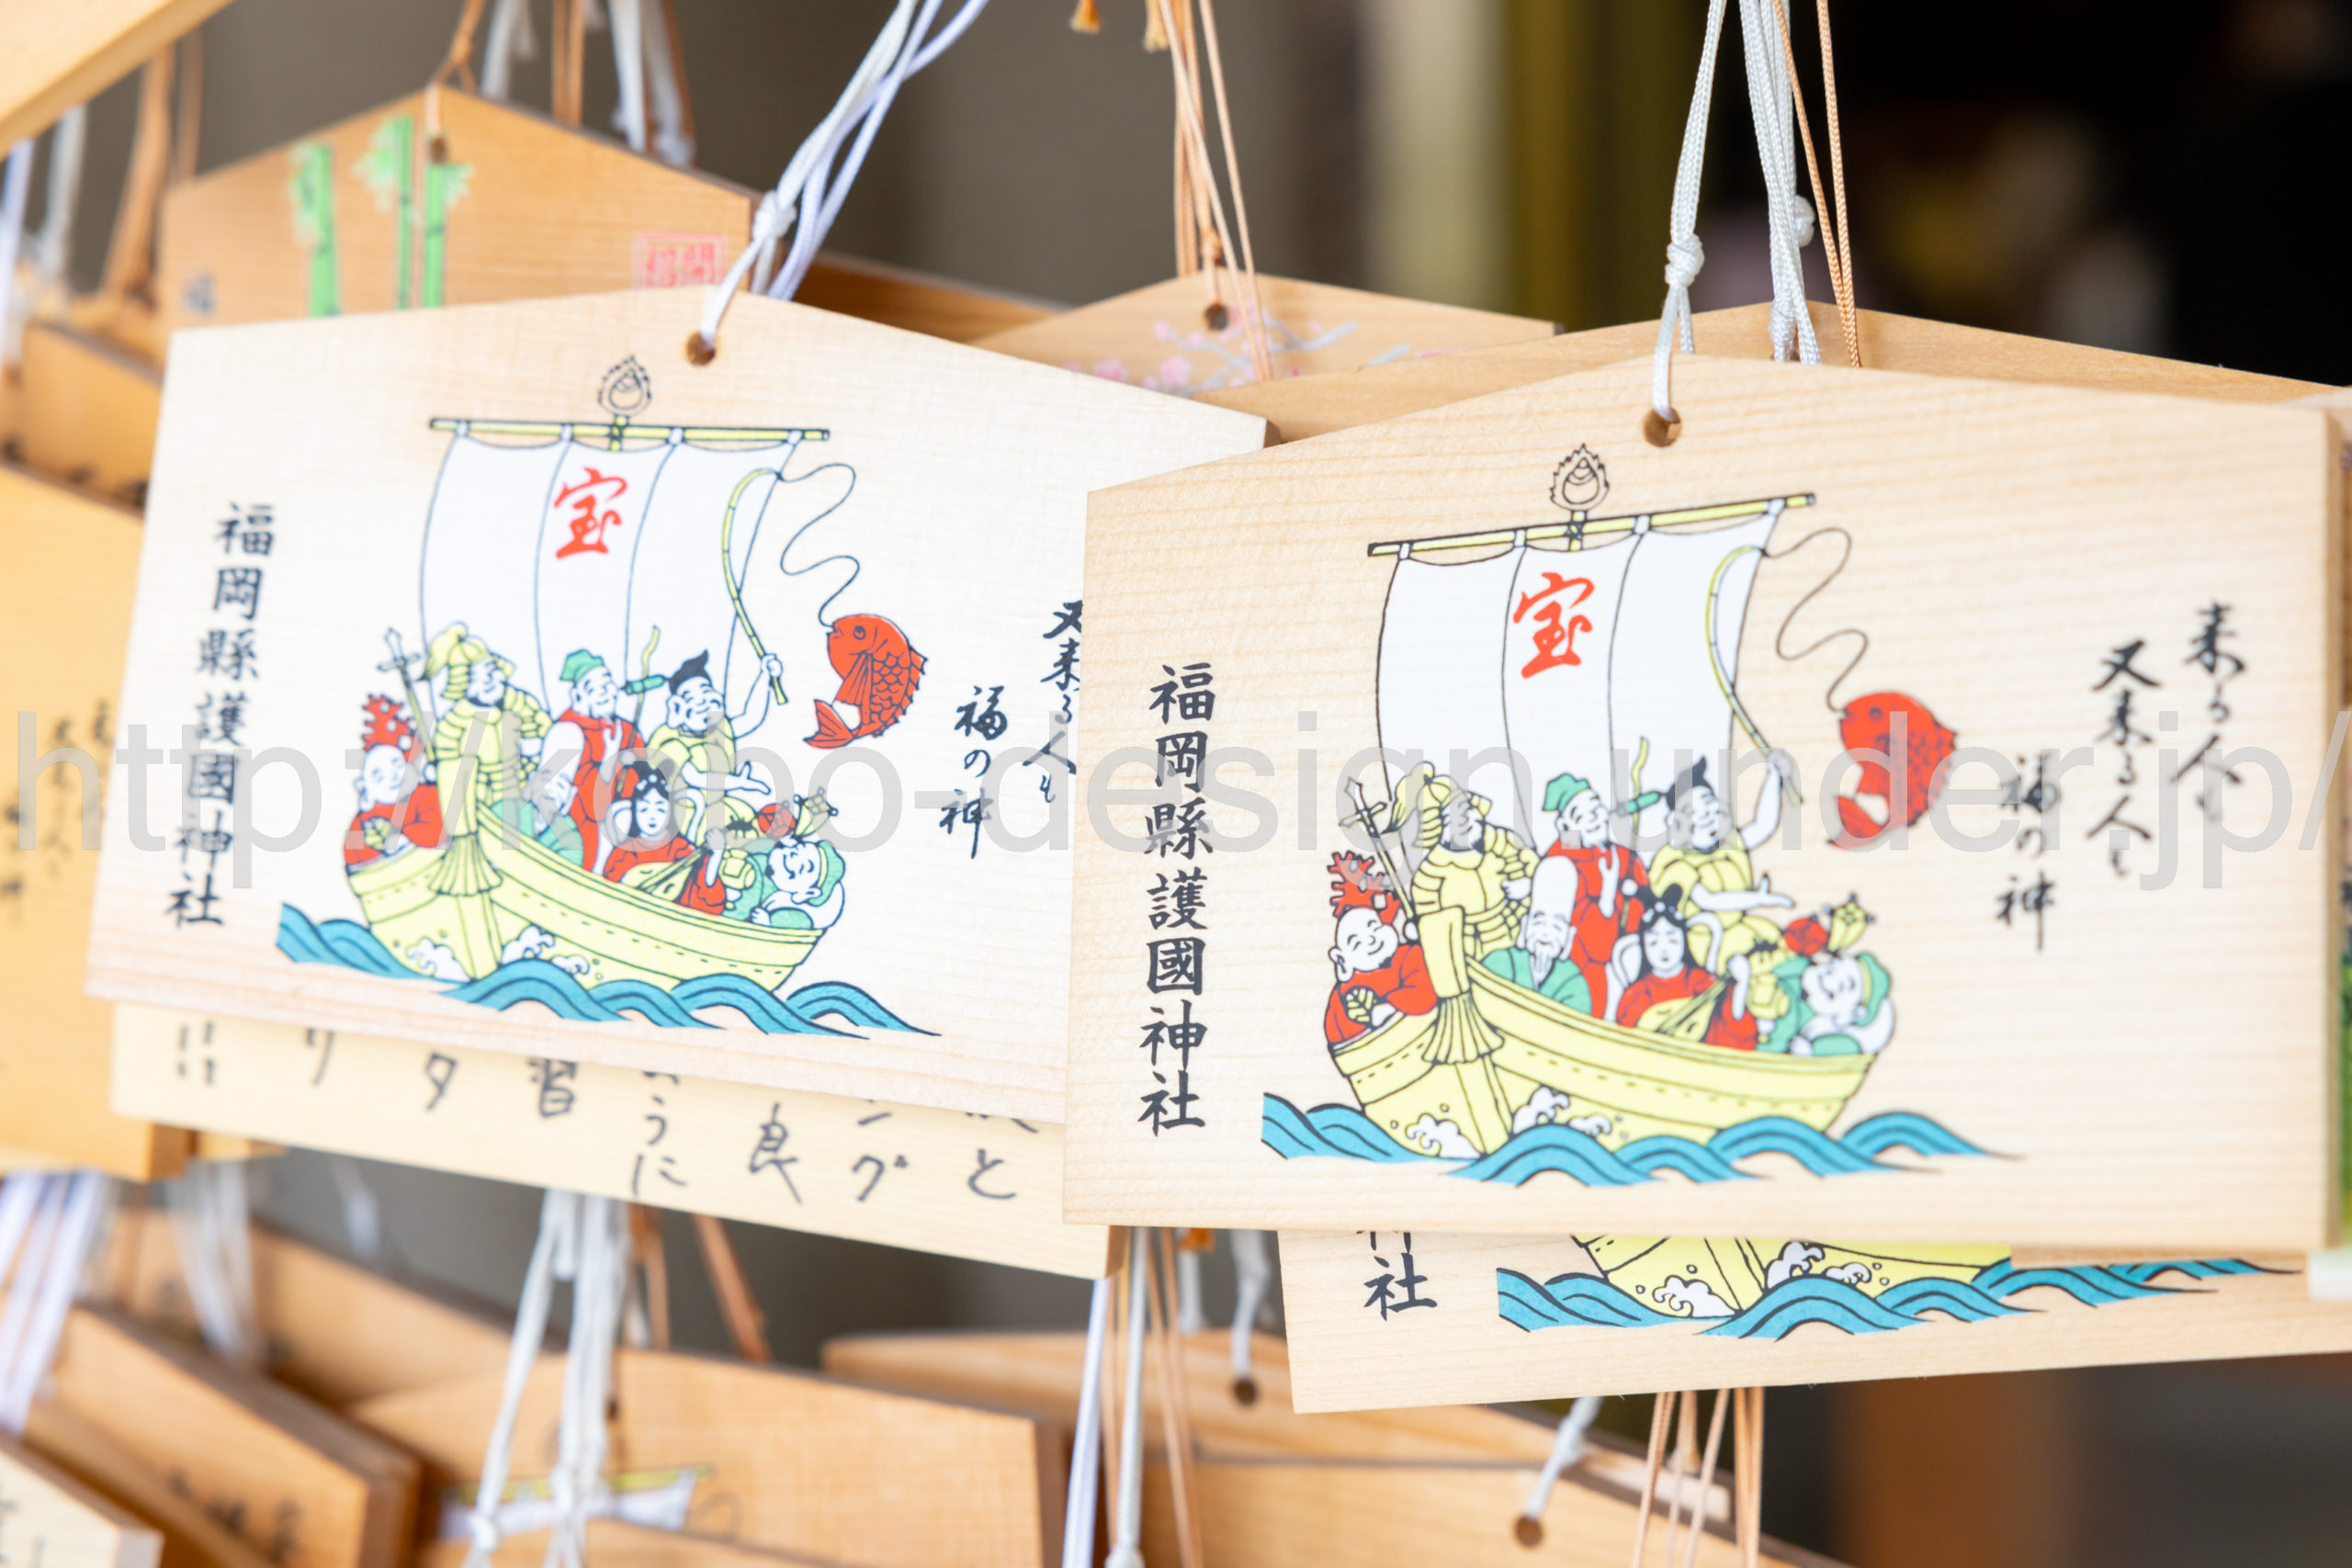 宝
福岡縣護國神社
又来る人も
福の神
宝
来る人も
又来る人も
福の神
福岡縣護國神社
リ
タ
習
うに
良
ング
と
社
http://kobo-design.under.jp/